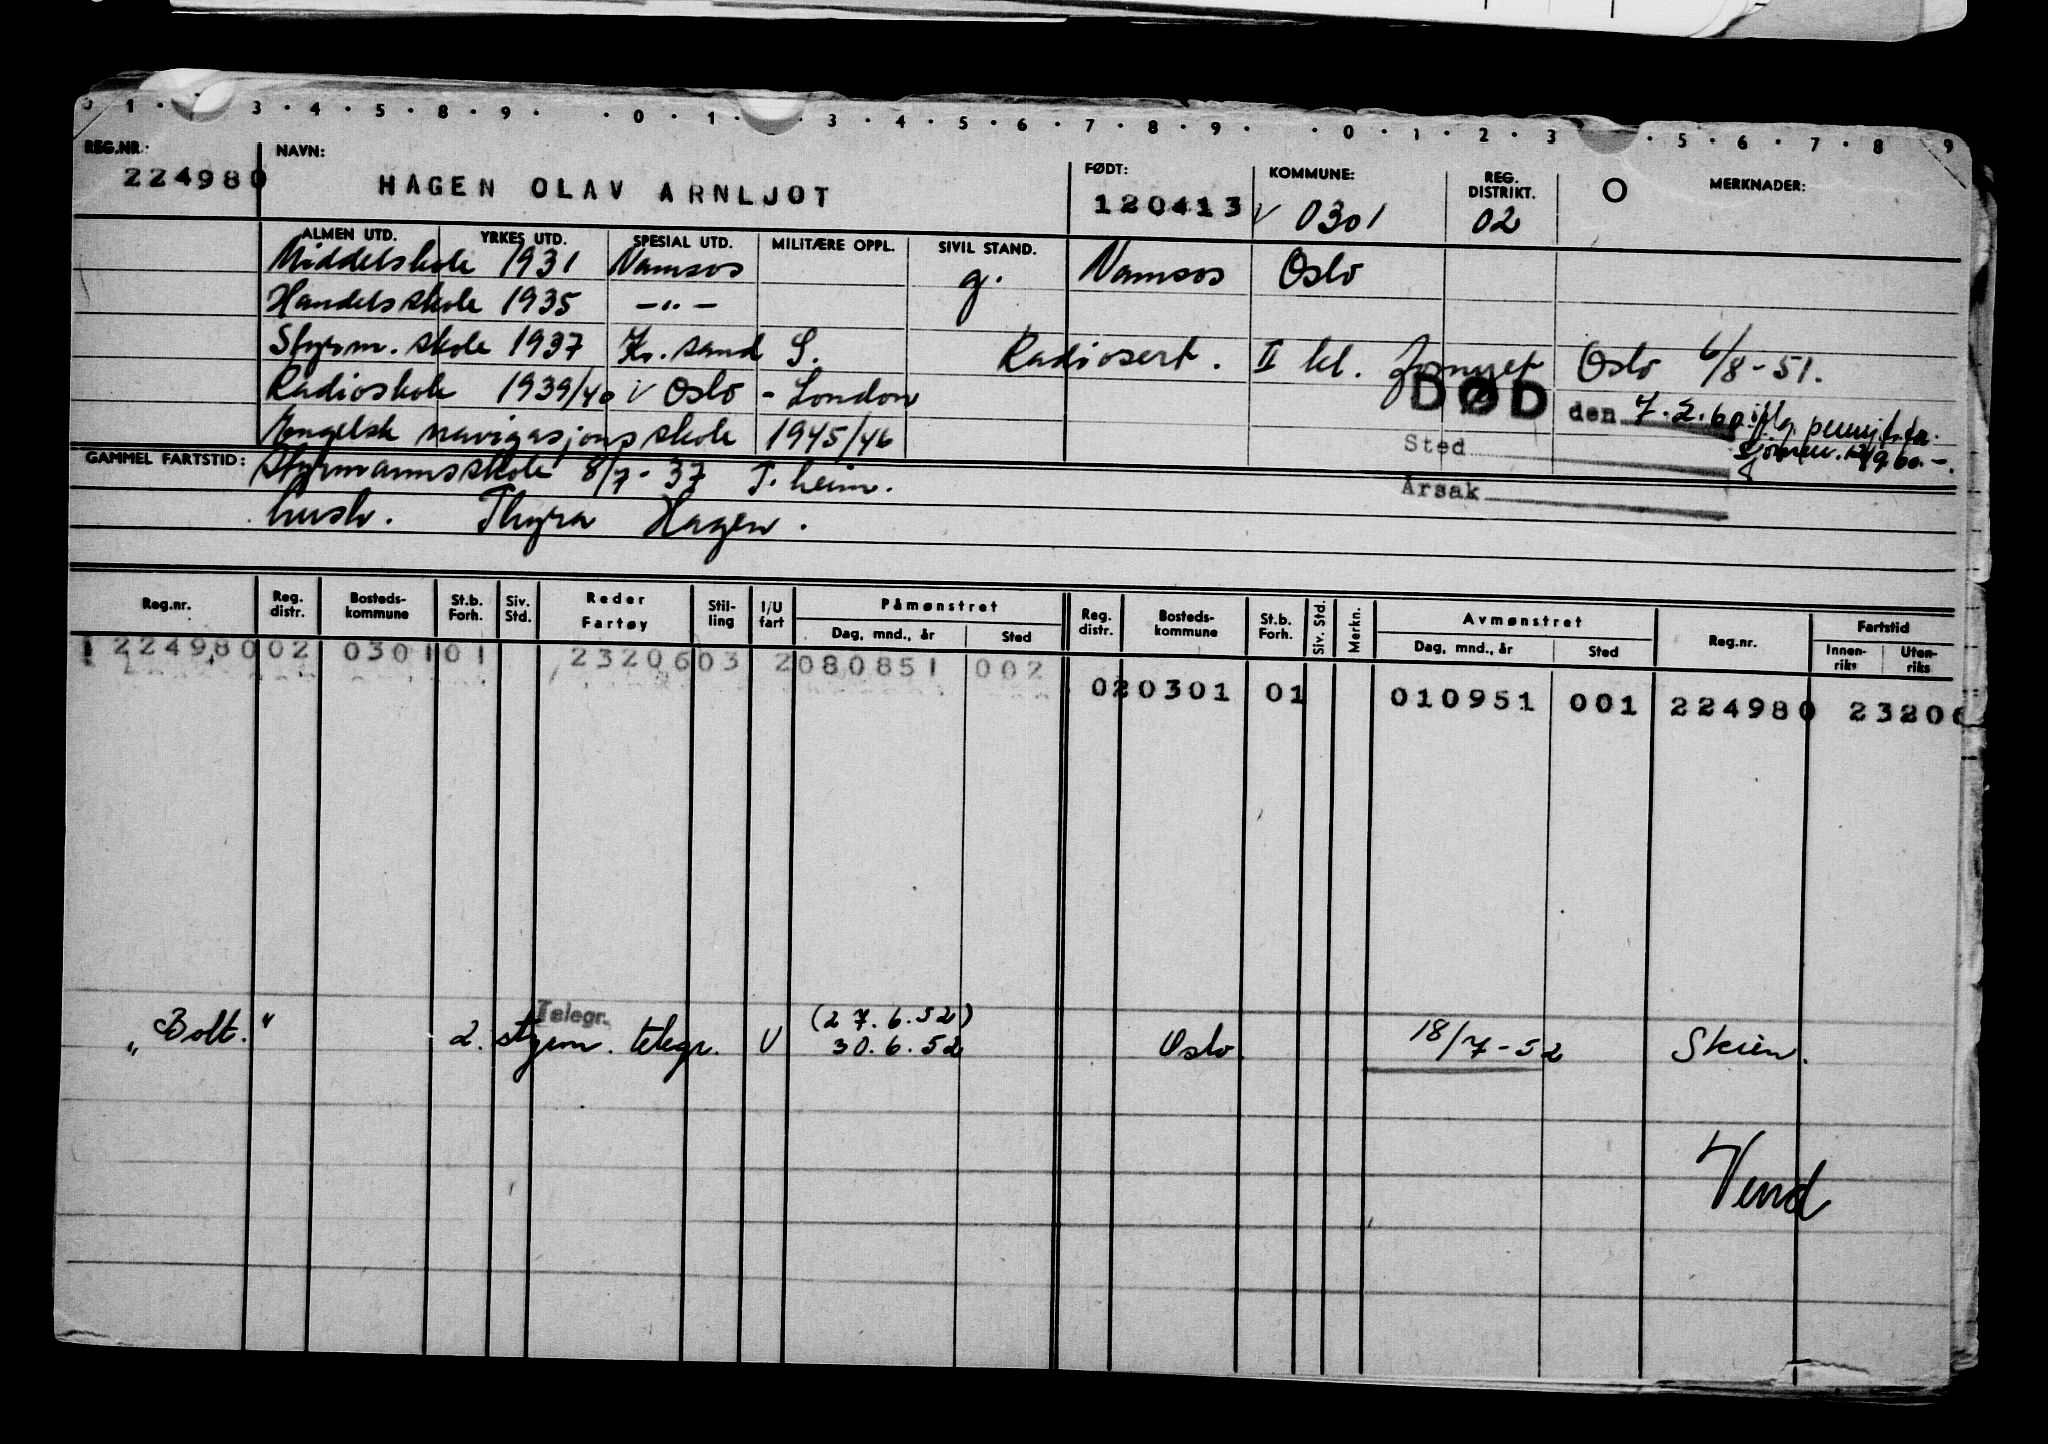 1 · · 3 · 4 · 5 · 8 · 9 · · 0 · 1 · · 3 · 4 · 5 · 6 · 7 · 8 · 9 · · 0 · 1 · 2 · 3 · 5 · 6 · 7 · 8 9
REG.NR.: NAVN: FØDT: KOMMUNE: REG. DISTRIKT. O MERKNADER:
224980 HAGEN OLAV ARNLJOT 120413 v 0301 02
ALMEN UTD. YRKES UTD. SPESIAL UTD. MILITÆRE OPPL. SIVIL STAND.
Middelskole 1931 Namsos g. Namsos Oslo
Handelsskole 1935 —"—
Styrm. skole 1937 Kr. sand S. Radiosert. II kl. fornyet Oslo 6/8-51.
Radioskole 1939/40 i Oslo - London DØD den 7.2.60 iflg.
Engelsk navigasjonsskole 1945/46 Sted
GAMMEL FARTSTID: Styrmannsskole 8/7-37 T.heim. Årsak
hustr. Thyra Hagen.
Reg.nr. Reg. distr. Bosteds-kommune St.b. Forh. Siv. Std. Reder Fartøy Stil-ling I/U fart Påmønstret Reg. distr. Bosteds-kommune St.b. Forh. Siv. Std. Merkn. Avmønstret Reg.nr. Fartstid
Dag, mnd., år Sted Dag, mnd., år Sted Innen-riks Uten-riks
1 224980 02 0301 01 23206 03 2 080851 002
02 0301 01 010951 001 224980 2320
Telegr. (27.6.52)
"Bolt." 2. styrm. telegr. U 30.6.52 Oslo. 18/7-52 Skien.
Vend